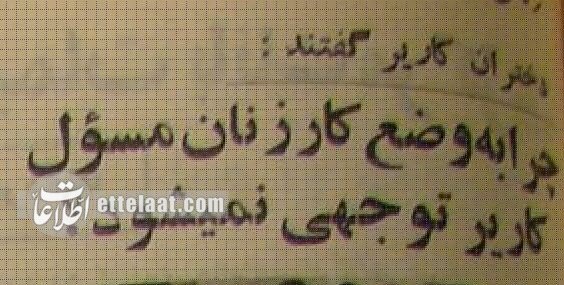 دختران کاریر گفتند :
چرا به وضع کار زنان مسؤل
کاریر توجهی نمیشود
اطلاعات ettelaat.com